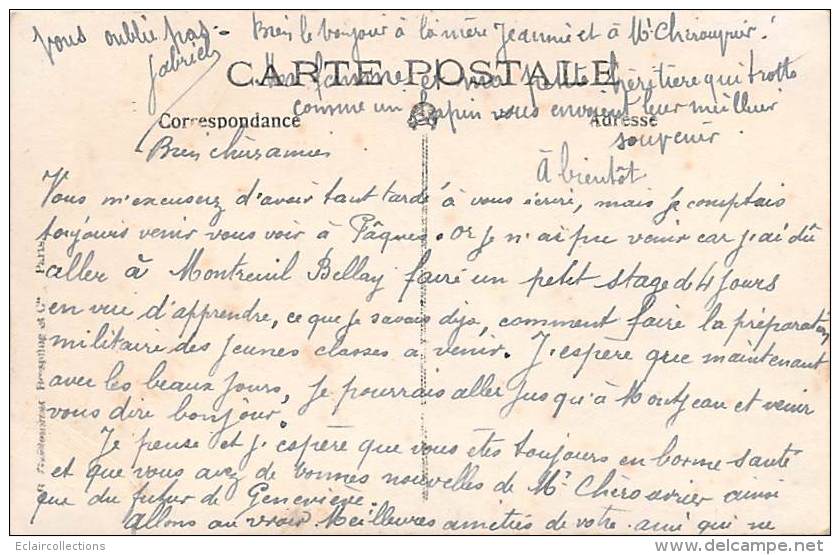 vous oublie pas. Bien le bonjour à la mère Jeannie et à Mr Cherouvrier.
Gabriel
CARTE POSTALE
Ma femme et ma petite héritière qui trotte
comme un lapin vous envoyent leur meilleur
Correspondance
Adresse
souvenir
Bien chers amies
À bientôt
Vous m'excuserez d'avoir tant tardé à vous écrire, mais je comptais
toujours venir vous voir à Pâques. Or je n'ai pu venir car j'ai dû
aller à Montreuil Bellay faire un petit stage de 4 jours
en vue d'apprendre, ce que je savais déjà, comment faire la préparation
militaire des jeunes classes à venir. J'espère que maintenant
avec les beaux jours, je pourrais aller jusqu'à Montjean et venir
vous dire bonjour.
Je pense et j'espère que vous êtes toujours en bonne santé
et que vous avez de bonnes nouvelles de Mr Chérouvrier ainsi
que du futur de Geneviève.
Allons au revoir Meilleures amitiés de votre ami qui ne
Eclaircollections
http://www.delcampe.net